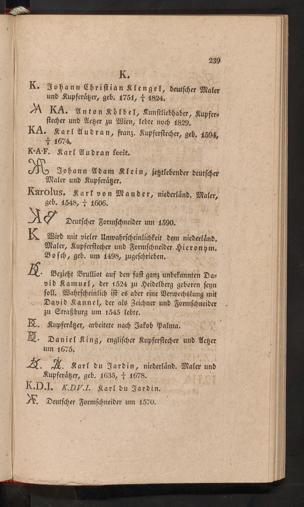 239
K.
K. Johann Christian Klengel, deutscher Maler
und Kupferätzer, geb. 1751, † 1824.
KA. Anton Kölbel, Kunstliebhaber, Kupfer-
stecher und Aetzer zu Wien, lebte noch 1829.
KA. Karl Audran, franz. Kupferstecher, geb. 1594,
† 1674.
K·A·F. Karl Audran fecit.
Johann Adam Klein, jetztlebender deutscher
Maler und Kupferätzer.
Karolus. Karl von Mander, niederländ. Maler,
geb. 1548, † 1606.
Deutscher Formschneider um 1590.
K Wird mit vieler Unwahrscheinlichkeit dem niederländ.
Maler, Kupferstecher und Formschneider Hieronym.
Bosch, geb. um 1498, zugeschrieben.
Bezieht Brulliot auf den fast ganz unbekannten Da-
vid Kamuel, der 1524 zu Heidelberg geboren seyn
soll. Wahrscheinlich ist es aber eine Verwechslung mit
David Kannel, der als Zeichner und Formschneider
zu Straßburg um 1545 lebte.
Kupferätzer, arbeitete nach Jakob Palma.
Daniel King, englischer Kupferstecher und Aetzer
um 1675.
Karl du Jardin, niederländ. Maler und
Kupferätzer, geb. 1635, † 1678.
K.D.I. K.DV.I. Karl du Jardin.
Deutscher Formschneider um 1570.